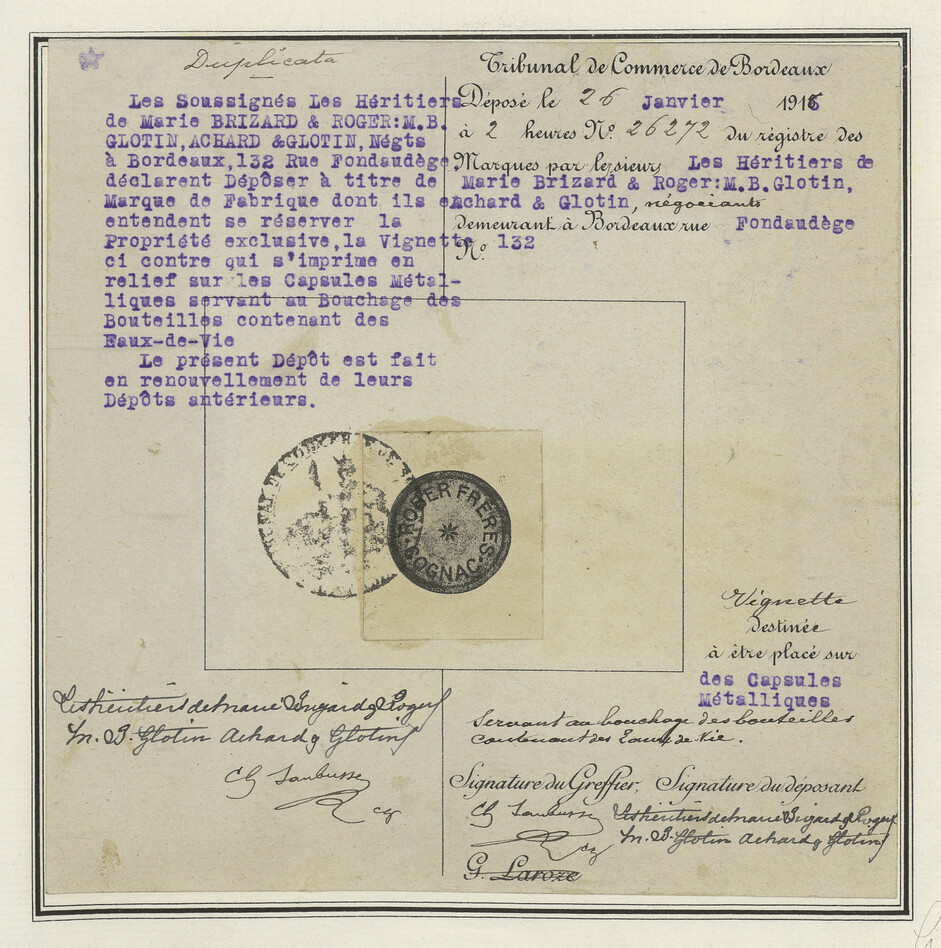 Duplicata
Les Soussignés Les Héritiers
de Marie BRIZARD & ROGER:M.B.
GLOTIN,ACHARD &GLOTIN,Négts
à Bordeaux,132 Rue Fondaudège
déclarent Dépôser à titre de
Marque de Fabrique dont ils en
entendent se réserver la
Propriété exclusive,la Vignette
ci contre qui s'imprime en
relief sur les Capsules Métal-
liques servant au Bouchage des
Bouteilles contenant des
Eaux-de-Vie
Le présent Dépôt est fait
en renouvellement de leurs
Dépôts antérieurs.
Tribunal de Commerce de Bordeaux
Déposé le 26 Janvier 1915
à 2 heures N° 26272 du régistre des
Marques par le sieur, Les Héritiers de
Marie Brizard & Roger:M.B.Glotin,
Achard & Glotin, négociants
demeurant à Bordeaux rue Fondaudège
N° 132
ROGER FRERES
COGNAC
Vignette
destinée
à être placé sur
des Capsules
Métalliques
Servant au bouchage des bouteilles
contenant des Eaux de Vie.
Les héritiers de Marie Brizard & Roger
M. B. Glotin Achard & Glotin
Signature du Greffier, Signature du déposant
Les héritiers de Marie Brizard & Roger
M. B. Glotin Achard & Glotin
G. Laroze